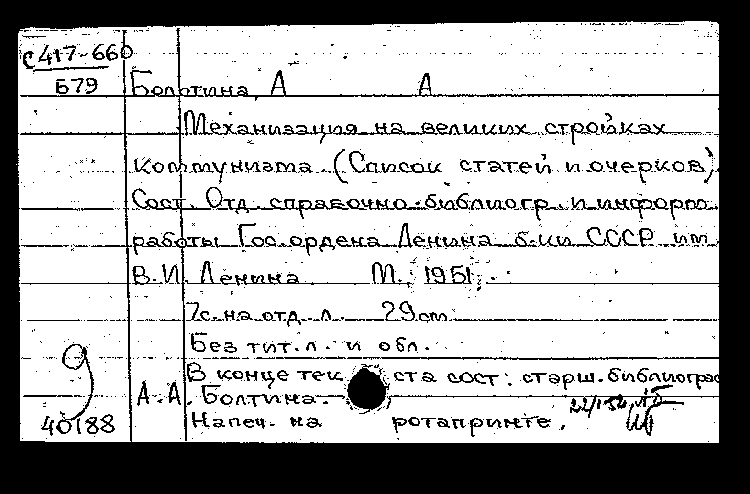 С417-660
Б79
Болотина, А А
Механизация на великих стройках
коммунизма. (Список статей и очерков)
Сост. Отд. справочно-библиогр. и информ.
работы Гос. ордена Ленина б-ки СССР им.
В.И. Ленина. М., 1951.
7с. на отд. л. 29см.
Без тит. л. и обл.
В конце текста сост: старш. библиограф
А.А. Болтина.
Напеч. на ротапринте.
g
40188
22/I-52